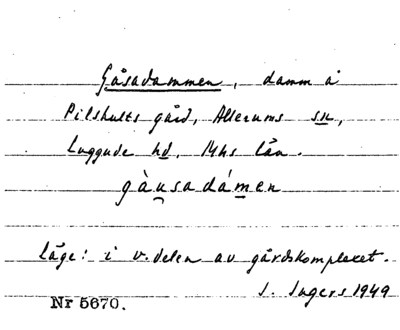 Gåsadammen, damm å
Pilshults gård, Allerums sn,
Luggude hd, Mhs län.
gàu̯sadám̲en
Läge: i v. delen av gårdskomplexet.
I. Ingers 1949
Nr 5670.